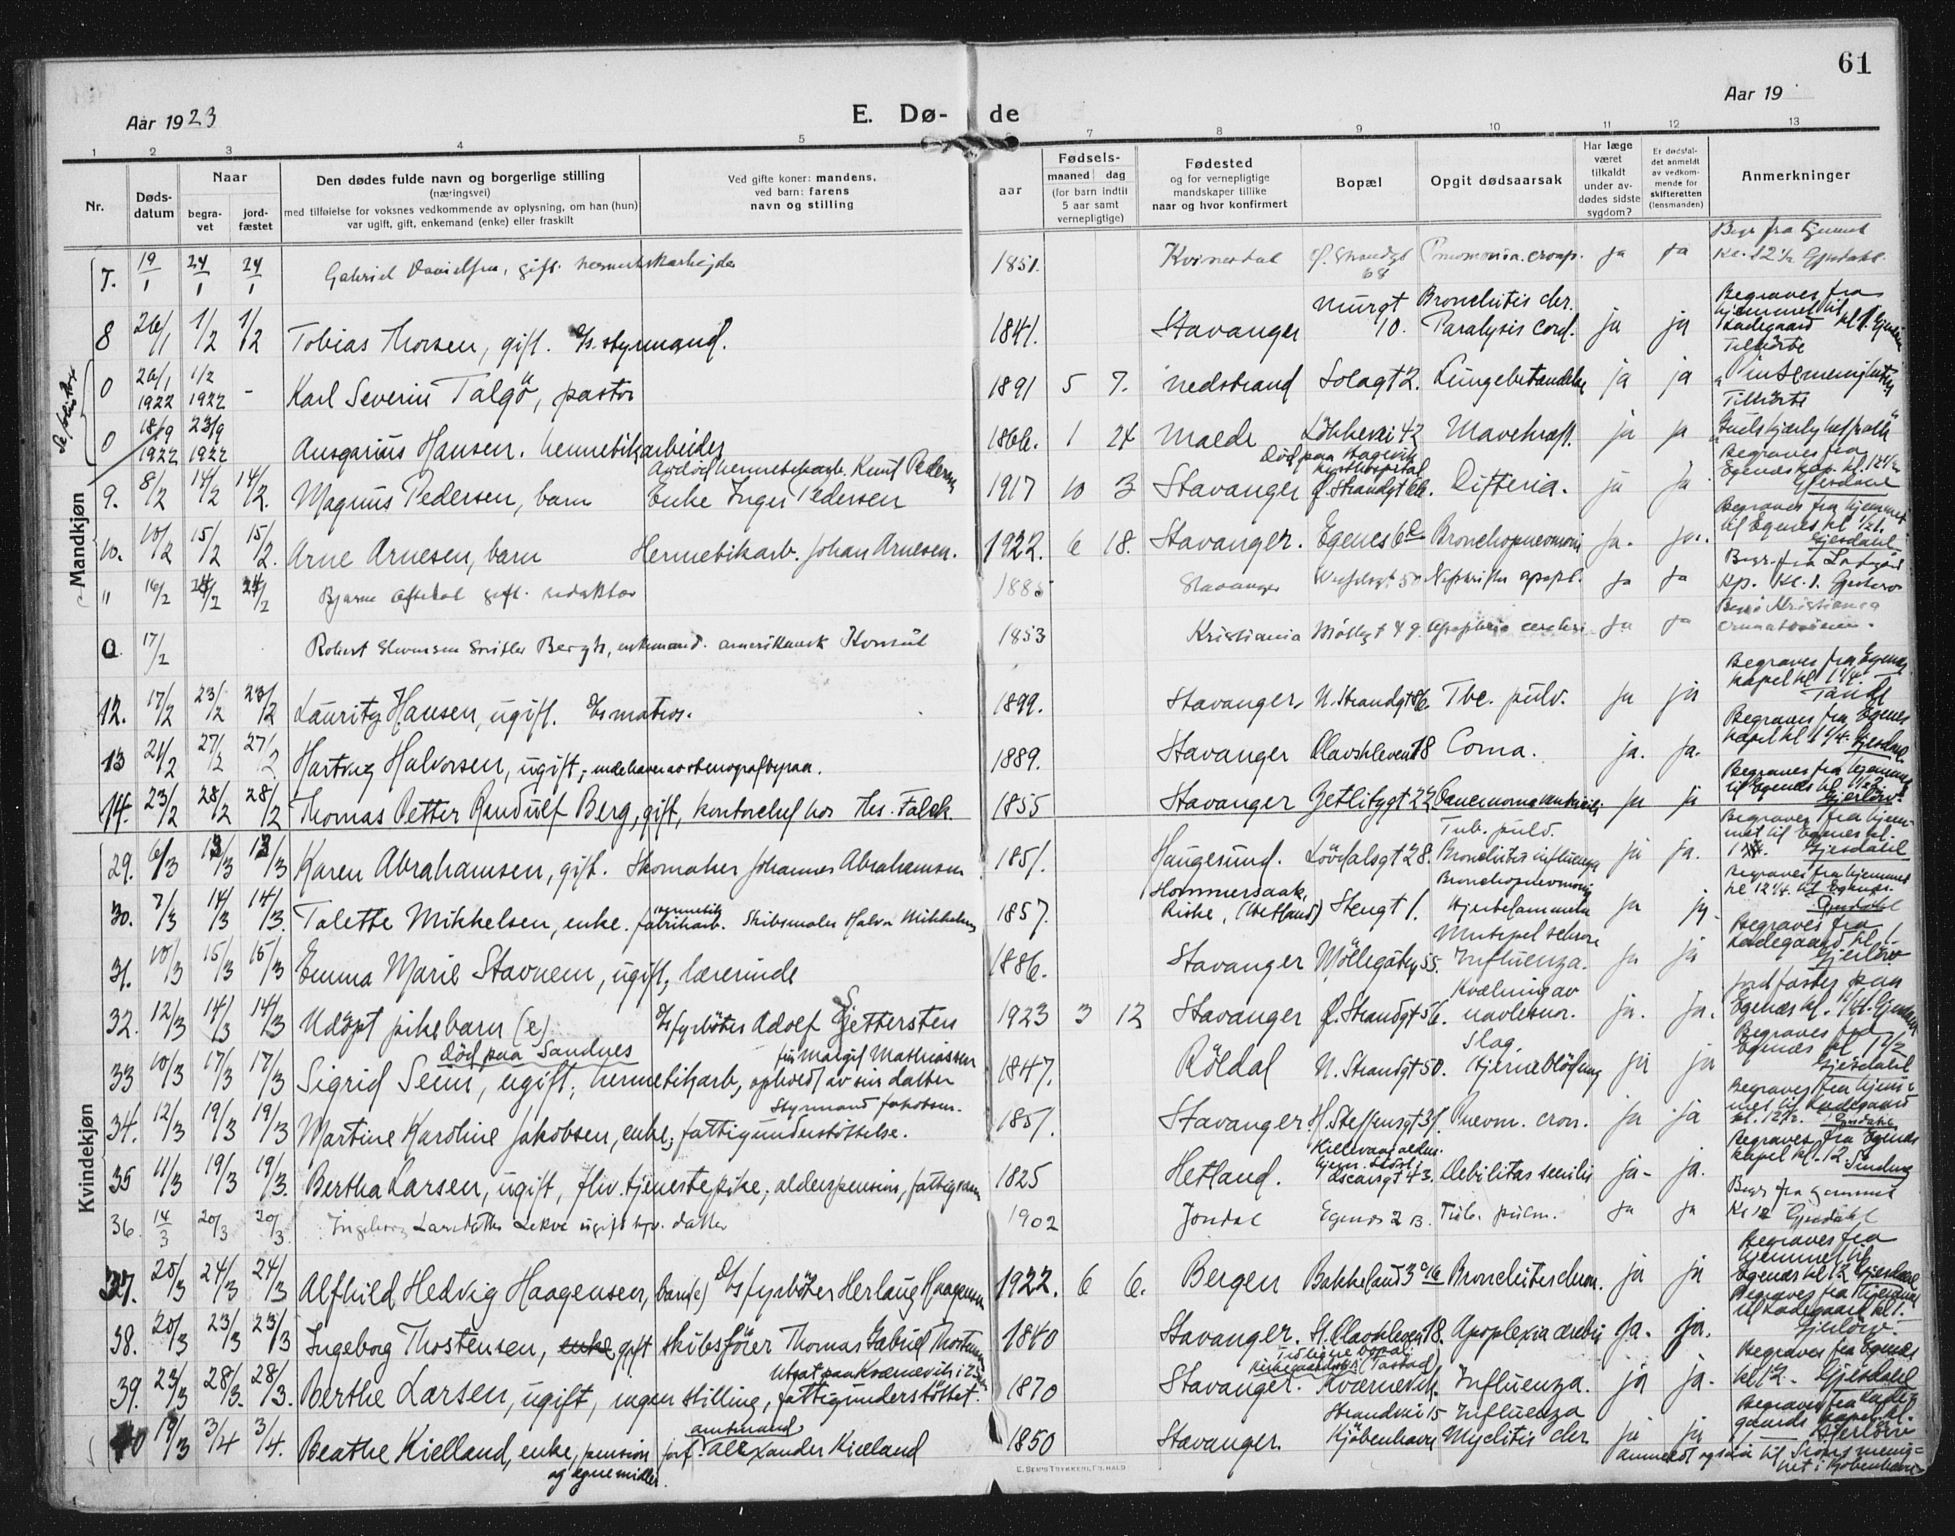 61
Aar 1923
E. Dø-de
Aar 19
1 2 3 4 5 7 8 9 10 11 12 13
Nr.
Døds-datum
Naar
begra-vet
jord-fæstet
Den dødes fulde navn og borgerlige stilling
(næringsvei)
med tilføielse for voksnes vedkommende av oplysning, om han (hun)
var ugift, gift, enkemand (enke) eller fraskilt
Ved gifte koner: mandens,
ved barn: farens
navn og stilling
Fødsels-
aar
maaned dag
(for barn indtil
5 aar samt
vernepligtige)
Fødested
og for vernepligtige
mandskaper tillike
naar og hvor konfirmert
Bopæl
Opgit dødsaarsak
Har læge
været
tilkaldt
under av-
dødes sidste
sygdom?
Er dødsfal-
det anmeldt
av vedkom-
mende for
skifteretten
(lensmanden)
Anmerkninger
Mandkjøn
7. 19/1 24/1 24/1 Gabriel Danielsen, gift. hermetikarbejder 1851. Kvinesdal Ø. Strandgt 68 Pneumonia croup. ja ja Begr. fra hjemmet Kl. 12 1/2 Gjesdahl.
8 26/1 1/2 1/2 Tobias Thorsen, gift. Ds. styrmand. 1841. Stavanger Murgt 10. Bronchitis chr. Paralysis cord. ja ja Begraves fra hjemmet til Ladegaard kl 1.
0 26/1 1922 1/2 1922 - Karl Severin Talgö, pastor 1891 5 7. Nedstrand Solagt 2. Lungebetændelse ja ja Tilhörte "Pinsemenigheten"
0 18/9 1922 23/9 1922 Ansgarius Hansen. hermetikarbeider 1866. 1 24 Molde Lökkevei 42 Mavekræft. ja ja Tilhörte
9. 8/2 14/2 14/2. Magnus Pedersen, barn Avdød hermetikarb. Knut Pedersen Enke Inger Pedersen 1917 10 3 Stavanger Død paa Ø. Strandgt 66. Difteria. ja ja Begraves fra Egenæs kap. kl. 12 1/2 Gjesdahl
10. 10/2 15/2 15/2. Arne Arnesen, barn Hermetikarb. Johan Arnesen. 1922. 6 18. Stavanger. Egenes 6 Bronchopnevmoni ja. ja. Begraves fra hjemmet til Egenes kl. Gjesdahl
" 16/2 24/2 24/2 Bjarne gift. redaktør 1885 Stavanger ja ja Begr. fra Ladgård Kp. Kl. 1.
0. 17/2 Robert Bergh, enkemand. amerikansk Konsul 1853 Kristiania Møllegt 49. Apoplexia cerebri ja ja Begr. i Kristiania
12. 17/2 23/2 23/2 Lauritz Hansen, ugift. Ds matros. 1899. Stavanger, N. Strandgt 86. Tbc. pulv. ja ja Begraves fra Egenæs kapel kl 1 1/4. Tandt
13 21/2 27/2 27/2 Hartvig Halvorsen, ugift; indehaver av stenografbyraa. 1889. Stavanger Olavskleven 18 Coma. ja. ja. Begraves fra Egenes kapel kl 1 1/4. Gjesdahl.
14. 23/2 28/2 28/2 Thomas Petter Randulf Berg, gift, kontorchef hos Ths. Falck. 1855 Stavanger Jetlibygt 22 Cancer ventriculi ja ja Begraves fra hjemmet til Egenæs kl 1 1/2. Gjerløw.
Kvindekjøn
29. 6/3 13/3 13/3 Karen Abrahamsen, gift. Skomaker Johannes Abrahamsen 1851. Haugesund. Lövdalsgt 28. Tub. pulv. Bronchitis influenza ja ja. Begraves fra hjemmet til Egenæs kl. Gjesdahl
30. 7/3 14/3 14/3. Talette Mikkelsen, enke. hermetik fabrikarb. Skibsmaler Halvor Mikkelsen 1857. Hommersaak, Riske, (Hetland) Stengt 1. Bronchopnevmoni Hjertelammelse ja ja. Begraves fra hjemmet kl 12 1/4 til Egenæs. Gjesdahl
31. 10/3 15/3 15/3 Emma Marie Stavnem, ugift, lærerinde 1886. Stavanger Möllegaten 55. Multipel sclerose Influenza. ja ja Begraves fra Ladegaard kl 1 Gjerlöw
32. 12/3 14/3 14/3 Udöpt pikebarn (e) Ds fyrböter Adolf Gjettersten 1923 3 12 Stavanger Ø. Strandgt 56. Kvælning av navlesnor. ja. ja. Jordfæstes paa Egenæs kl.
33 10/3 17/3 17/3 Sigrid Seim, ugift; hermetikarb, ophold av sin datter Død paa Sandnes fru Margit Mathiassen 1847. Röldal N. Strandgt 50. Slag. Hjerneblödning ja ja Begraves fra Egenæs kl 1 1/2 Gjesdahl
34. 12/3 19/3 19/3 Martine Karoline Jakobsen, enke; fattigunderstöttelse. Styrmand Jakobsen. 1851. Stavanger H. Steffensgt 31. Pnevm. cron. ja ja Begraves fra hjemmet til Ladegaard kl. 12 1/2. Gjesdahl
35 11/3 19/3 19/3. Bertha Larsen, ugift, fhv. tjenestepike; alderspension, 1825 Hetland. Oscarsgt 43. Debilitas senilis ja- ja. Begraves fra Egenæs kapel kl. 12 Sinding
36. 14/3 20/3 20/3 Ingeborg Larsdatter Lekve ugift datter 1902 Jondal Egenæs 2 B. Tub. pulm. ja ja Begr. fra hjemmet Kl 12 Gjesdahl
37. 20/3 24/3 24/3 Alfhild Hedvig Haagensen, barn(e) Ds fyrböter Herlaug Haagensen 1922. 6 6. Bergen Bakkeland 3 Bronchitis chron. ja ja Begraves fra hjemmet til Egenæs kl 12 Gjesdahl
38. 20/3 23/3 23/3 Ingeborg Thostensen, enke gift skibsförer Thomas Gabriel Thostensen 1840 Stavanger. St. Olavskleven 18. Apoplexia cerebri ja. ja. Begraves fra hjemmet til Ladegaard kl 1. Gjerlöw.
39. 23/3 28/3. 28/3. Berthe Larsen, ugift, ingen stilling, fattigunderstöttet. 1870 Stavanger. Tidligere bopæl Kværnevik. Influenza. ja ja. Begraves fra Egenæs kl 12. Gjesdahl
40 19/3 3/4 3/4. Beathe Kielland, enke, pension og egne midler. forh. amtmand Alexander Kielland 1850 Stavanger. Strandvei 15 Kjöbenhavn Influenza Myelitis chr ja ja Begraves fra Ladegaards kapel kl. Gjerlöw
anmeldt også til menighet i Kjöbenhavn
E. SEM'S TRYKKERI, FR.HALD